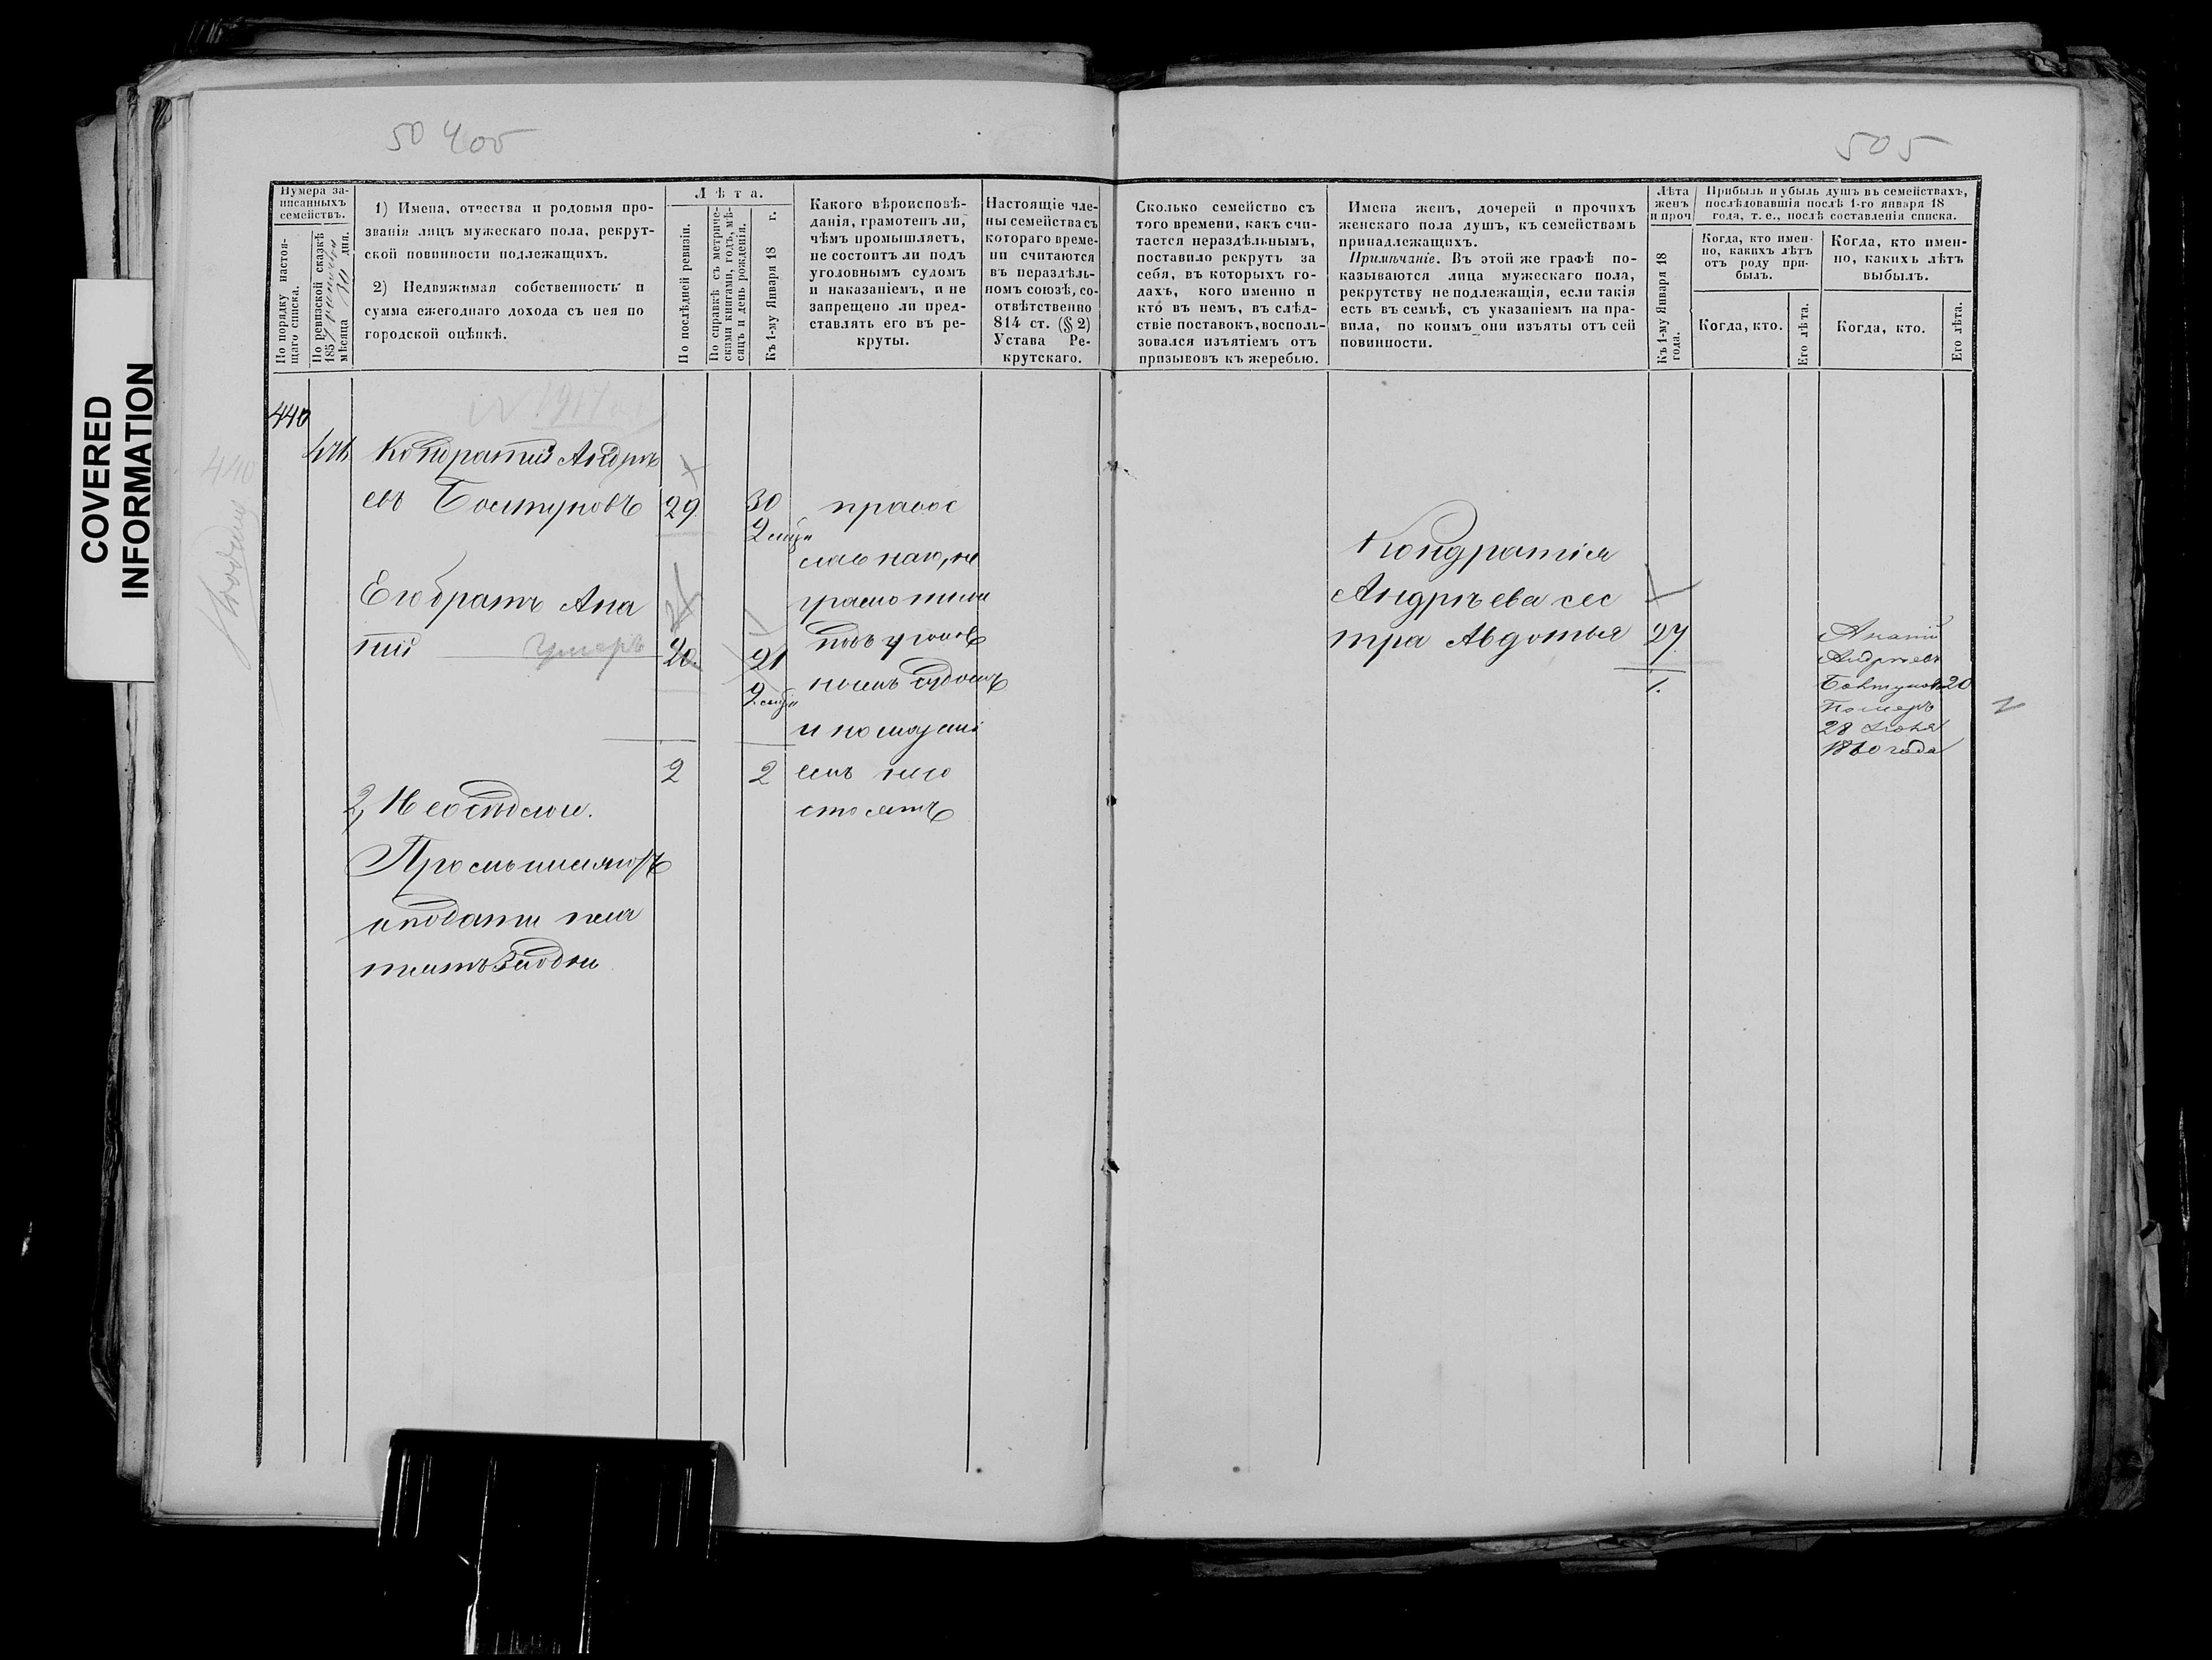 COVERED
INFORMATION
50 400
505
Нумера за-
писанныхъ
семействъ.
По порядку настоя-
щаго списка.
По ревизской сказкѣ
1857
мѣсяца 30 дня.
1) Имена, отчества и родовыя про-
званія лицъ мужескаго пола, рекрут-
ской повинности подлежащихъ.
2) Недвижимая собственность и
сумма ежегоднаго дохода съ нея по
городской оцѣнкѣ.
Лѣта.
По послѣдней ревизіи.
По справкѣ съ метриче-
скими книгами, годъ, мѣ-
сяцъ и день рожденія.
Къ 1-му Января 18 г.
Какого вѣроисповѣ-
данія, грамотенъ ли,
чѣмъ промышляетъ,
не состоитъ ли подъ
уголовнымъ судомъ
и наказаніемъ, и не
запрещено ли пред-
ставлять его въ ре-
круты.
Настоящіе чле-
ны семейства съ
котораго време-
ни считаются
въ нераздѣль-
номъ союзѣ, со-
отвѣтственно
814 ст. (§ 2)
Устава Ре-
крутскаго.
Сколько семейство съ
того времени, какъ счи-
тается нераздѣльнымъ,
поставило рекрутъ за
себя, въ которыхъ го-
дахъ, кого именно и
кто въ немъ, въ слѣд-
ствіе поставокъ, восполь-
зовался изъятіемъ отъ
призывовъ къ жеребью.
Имена женъ, дочерей и прочихъ
женскаго пола душъ, къ семействамъ
принадлежащихъ.
Примѣчаніе. Въ этой же графѣ по-
казываются лица мужескаго пола,
рекрутству не подлежащія, если такія
есть въ семьѣ, съ указаніемъ на пра-
вила, по коимъ они изъяты отъ сей
повинности.
Лѣта
женъ
и проч
Къ 1-му Января 18
года.
Прибыль и убыль душъ въ семействахъ,
послѣдовавшія послѣ 1-го января 18
года, т. е., послѣ составленія списка.
Когда, кто имен-
но, какихъ лѣтъ
отъ роду при-
былъ.
Когда, кто.
Его лѣта.
Когда, кто имен-
но, какихъ лѣтъ
выбылъ.
Когда, кто.
Его лѣта.
440
440
Кондратій Андрѣ
евъ Болтуновъ 29 30
Его братъ Ана
ній умеръ 20 21
2 2
2, Неосѣдлы.
Промышляютъ
и подати пла
тятъ
правос
лавнаго, не
грамотны
подъ уголов
нымъ судомъ
и наказані
емъ не со
стоятъ
Кондратія
Андрѣева сес
тра Авдотья 27
1.
Ананій
Андрѣевъ
Болтуновъ 20
Померъ
28 Іюня
1860 года